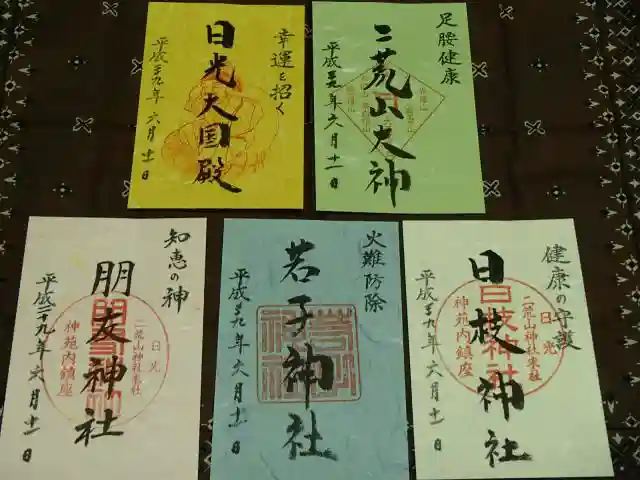 幸運を招く
日光大国殿
平成二九年六月十一日
足腰健康
二荒山大神
平成二九年六月十一日
知恵の神
朋友神社
日光
二荒山神社末社
神苑内鎮座
平成二九年六月十一日
火難防除
若子神社
平成二九年六月十一日
健康の守護
日枝神社
日光
二荒山神社末社
神苑内鎮座
日枝神社
平成二九年六月十一日